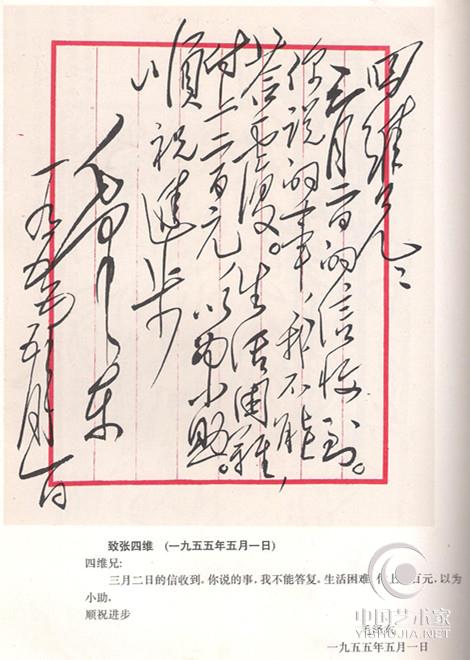 四維兄：
三月二日的信收到。
你说的事，我不能
答覆。生活困難，
付上二百元，以为小助。
順祝進步
毛泽东
一九五五年五月一日
致张四维 （一九五五年五月一日）
四维兄：
三月二日的信收到。你说的事，我不能答复。生活困难，付上二百元，以为
小助。
顺祝进步
毛泽东
一九五五年五月一日
中国艺术家
YISHUJIA.NET.CN